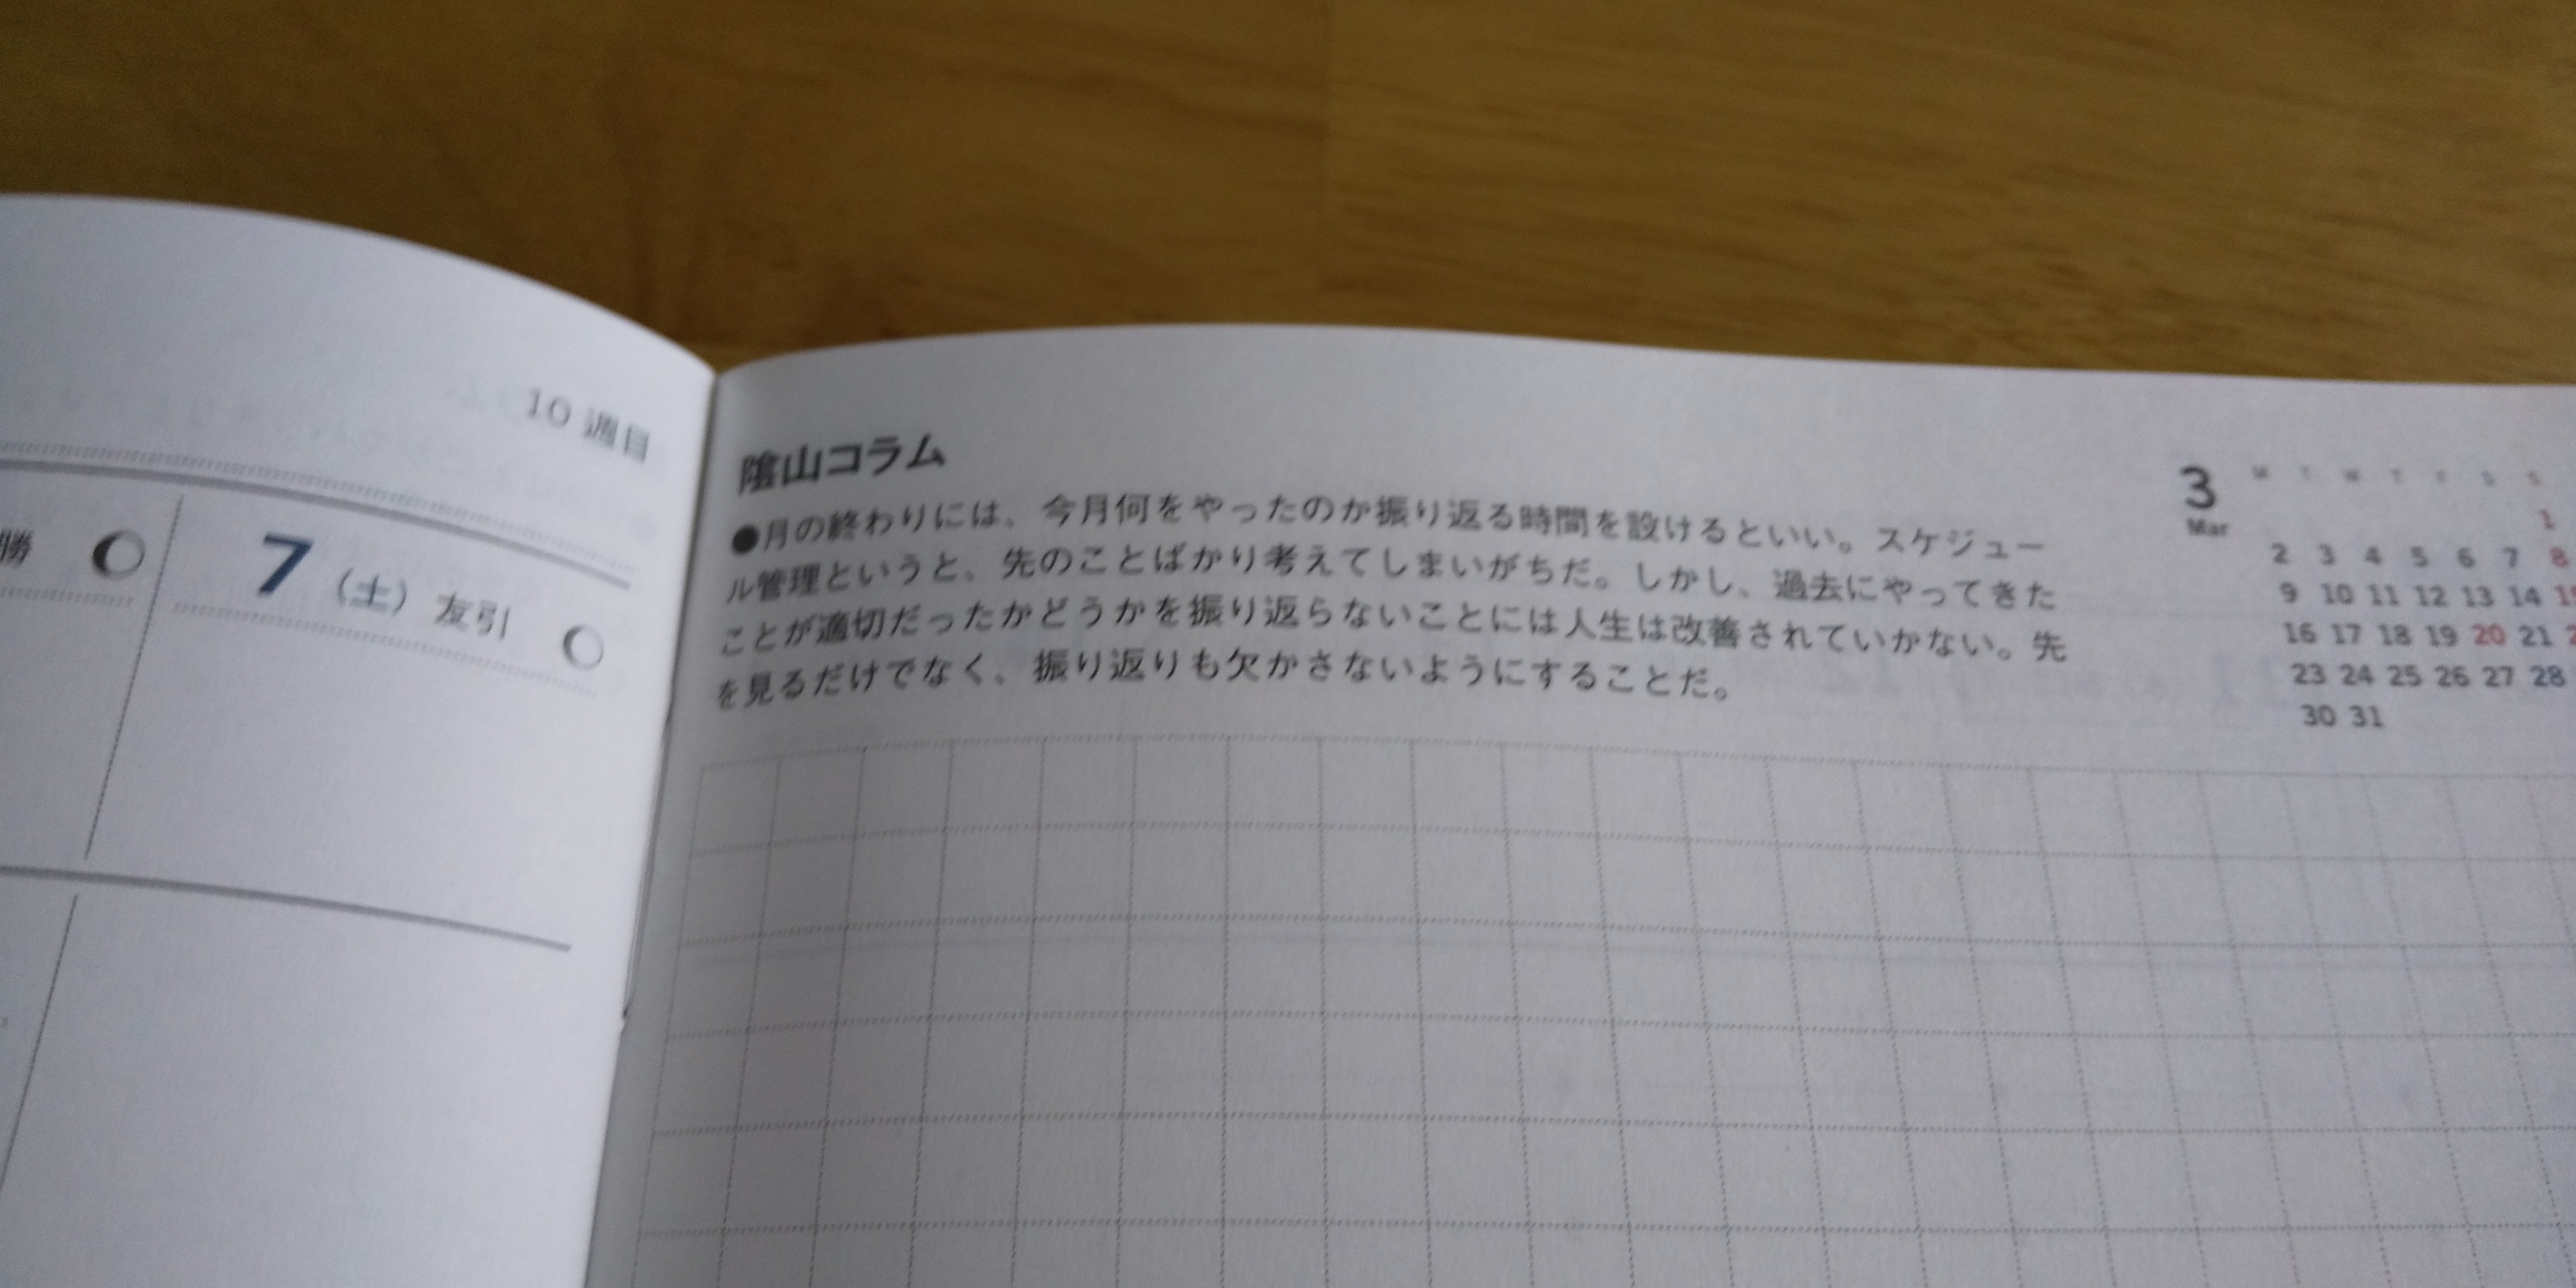 10 週目
勝
7 (土) 友引
陰山コラム
●月の終わりには、今月何をやったのか振り返る時間を設けるといい。スケジュー
ル管理というと、先のことばかり考えてしまいがちだ。しかし、過去にやってきた
ことが適切だったかどうかを振り返らないことには人生は改善されていかない。先
を見るだけでなく、振り返りも欠かさないようにすることだ。
3
Mar
M T W T F S S
1
2 3 4 5 6 7 8
9 10 11 12 13 14
16 17 18 19 20 21
23 24 25 26 27 28
30 31